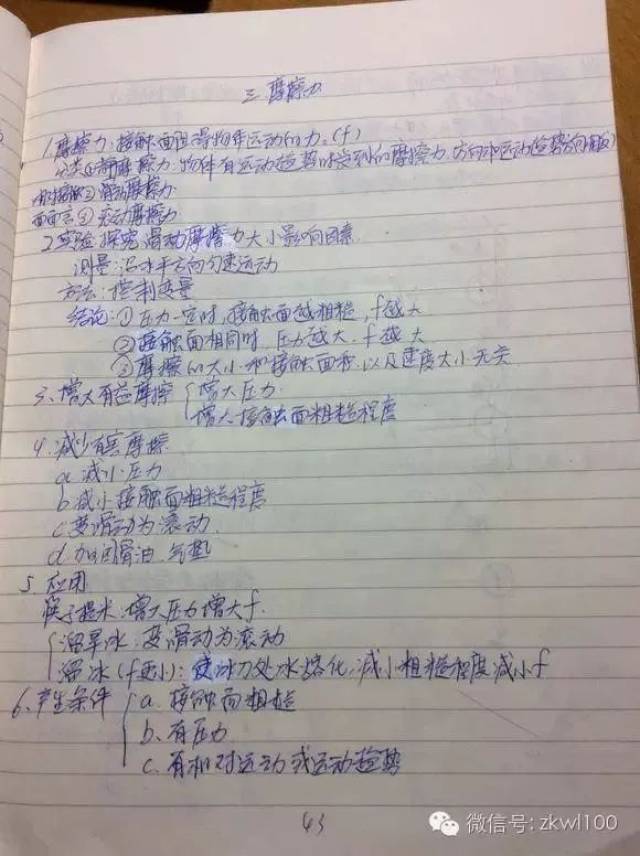 三.摩擦力
1.摩擦力:接触面阻碍物体运动的力.(f)
分类①静摩擦力:物体有运动趋势时受到的摩擦力.方向和运动趋势方向相反
②滑动摩擦力
面而言③滚动摩擦力
2.实验:探究滑动摩擦力大小影响因素.
测量:沿水平方向匀速运动
方法:控制变量
结论:①压力一定时,接触面越粗糙,f越大
②接触面相同时.压力越大.f越大
③摩擦的大小和接触面积.以及速度大小无关
3、增大有益摩擦 增大压力.
增大接触面粗糙程度
4.减少有害摩擦
a减小压力
b减小接触面粗糙程度
c变滑动为滚动.
d.加润滑油.气垫
5.应用
筷子提米:增大压力增大f.
溜旱冰:变滑动为滚动
溜冰(f更小):使冰刀处冰熔化,减小粗糙程度减小f
6、产生条件 a.接触面粗糙
b、有压力
c.有相对运动或运动趋势
43
微信号: zkwl100